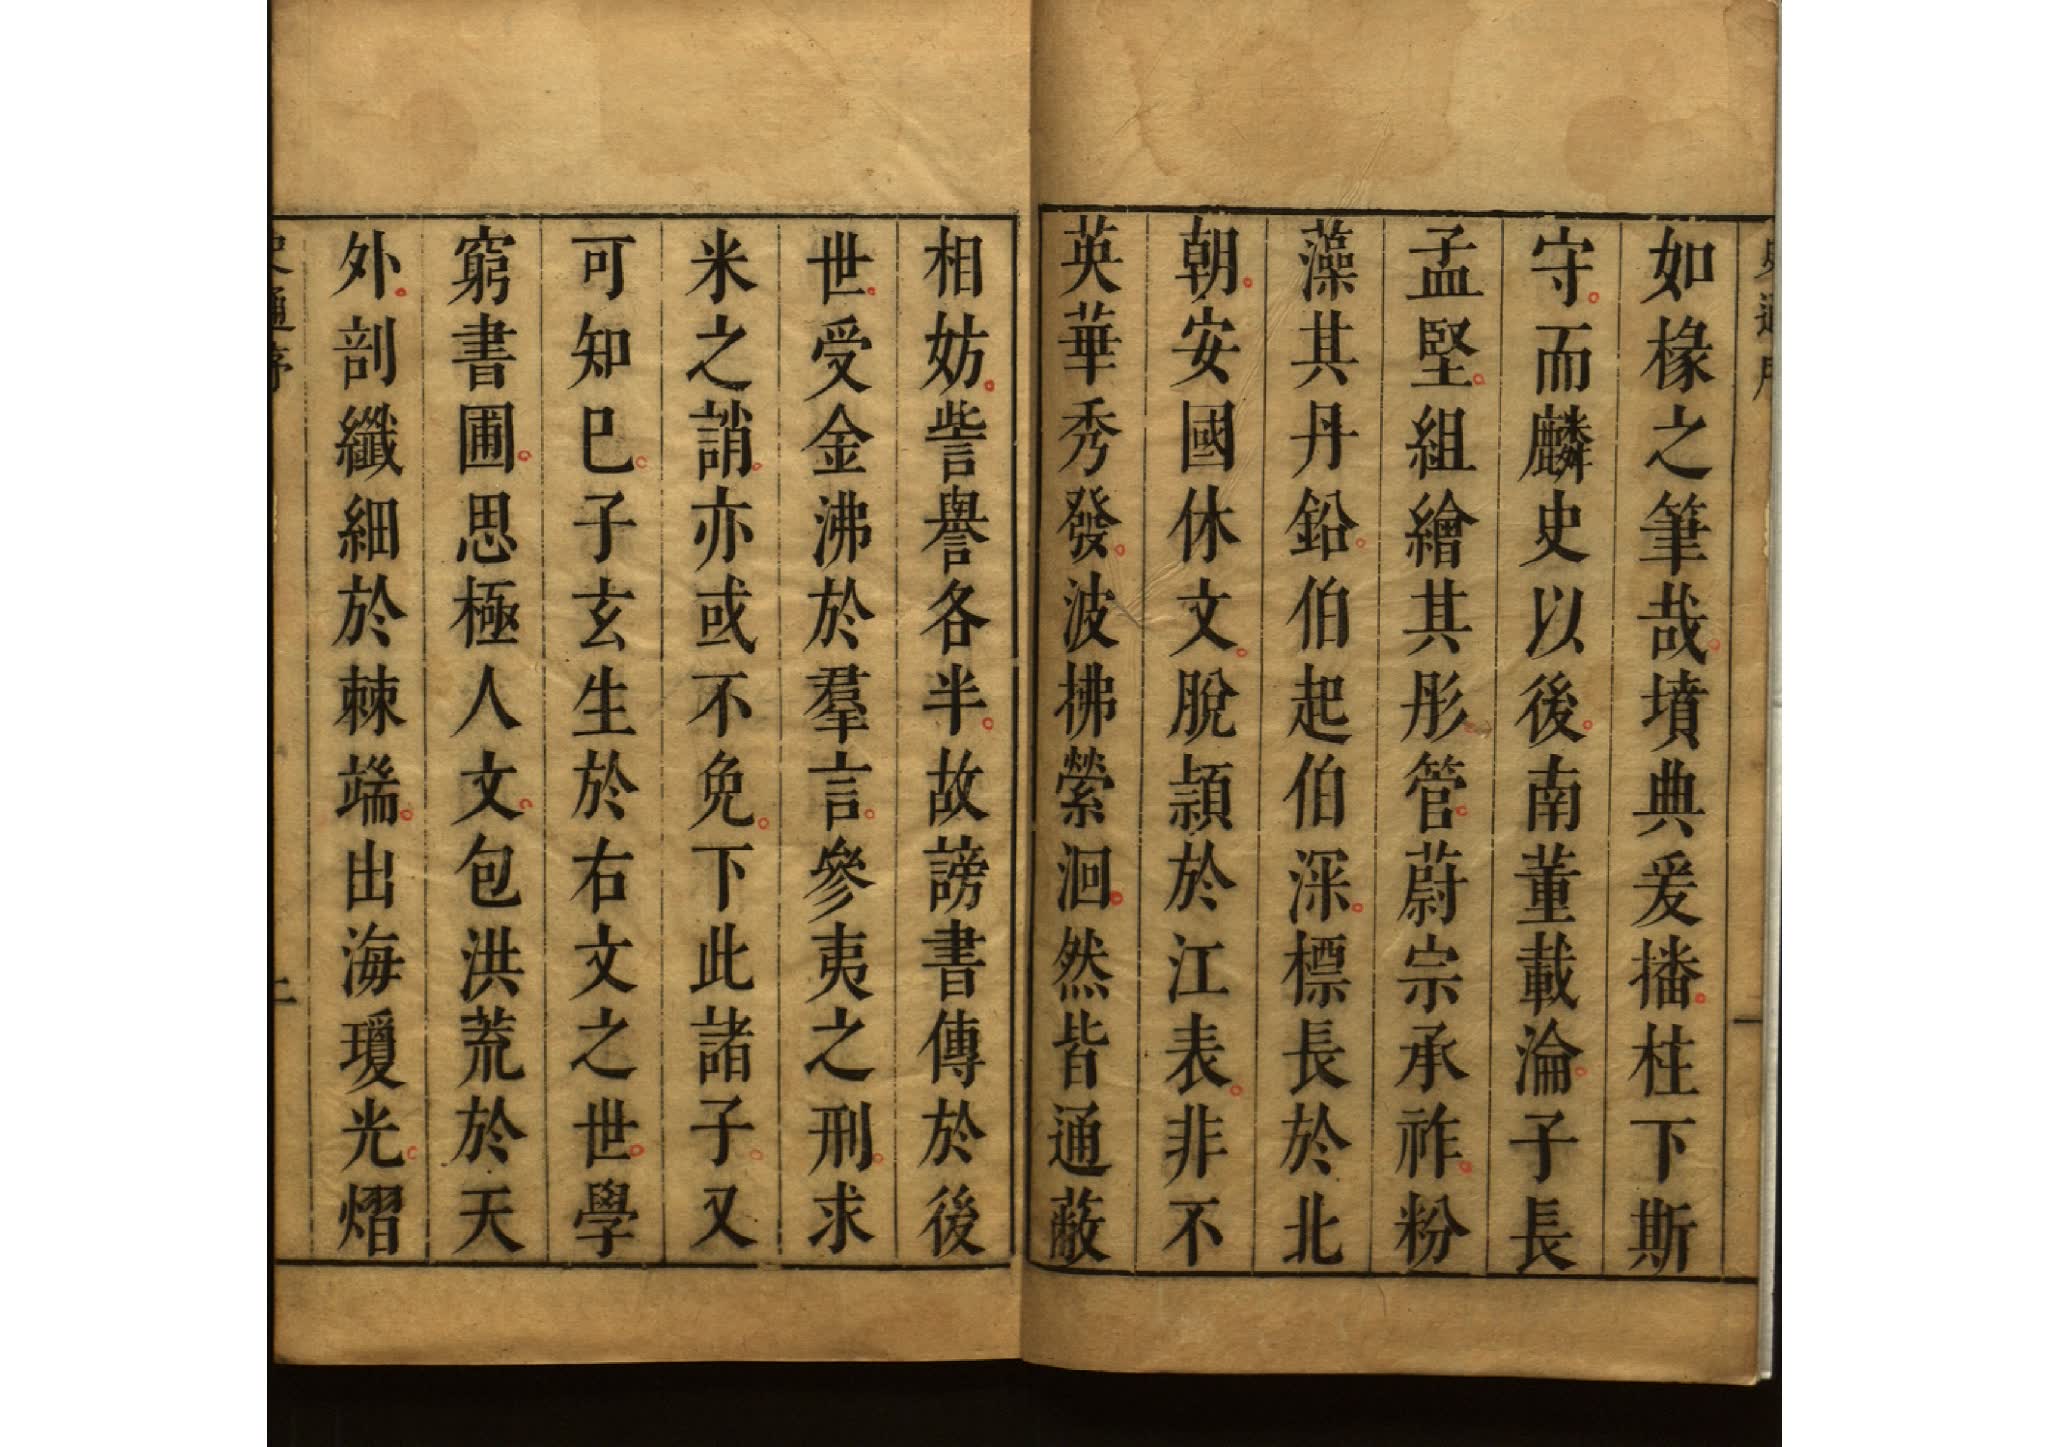 如椽之筆哉。墳典爰播。柱下斯
守。而麟史以後。南董載淪。子長
孟堅。組繪其彤管。蔚宗承祚。粉
藻其丹鉛。伯起伯深。標長於北
朝。安國休文。脫穎於江表。非不
英華秀發。波拂縈洄。然皆通蔽
相妨。訾譽各半。故謗書傳於後
世。受金沸於羣言。參夷之刑。求
米之誚。亦或不免。下此諸子。又
可知巳。子玄生於右文之世。學
窮書圃。思極人文。包洪荒於天
外。剖纖細於棘端。出海瓊光。熠
史通序